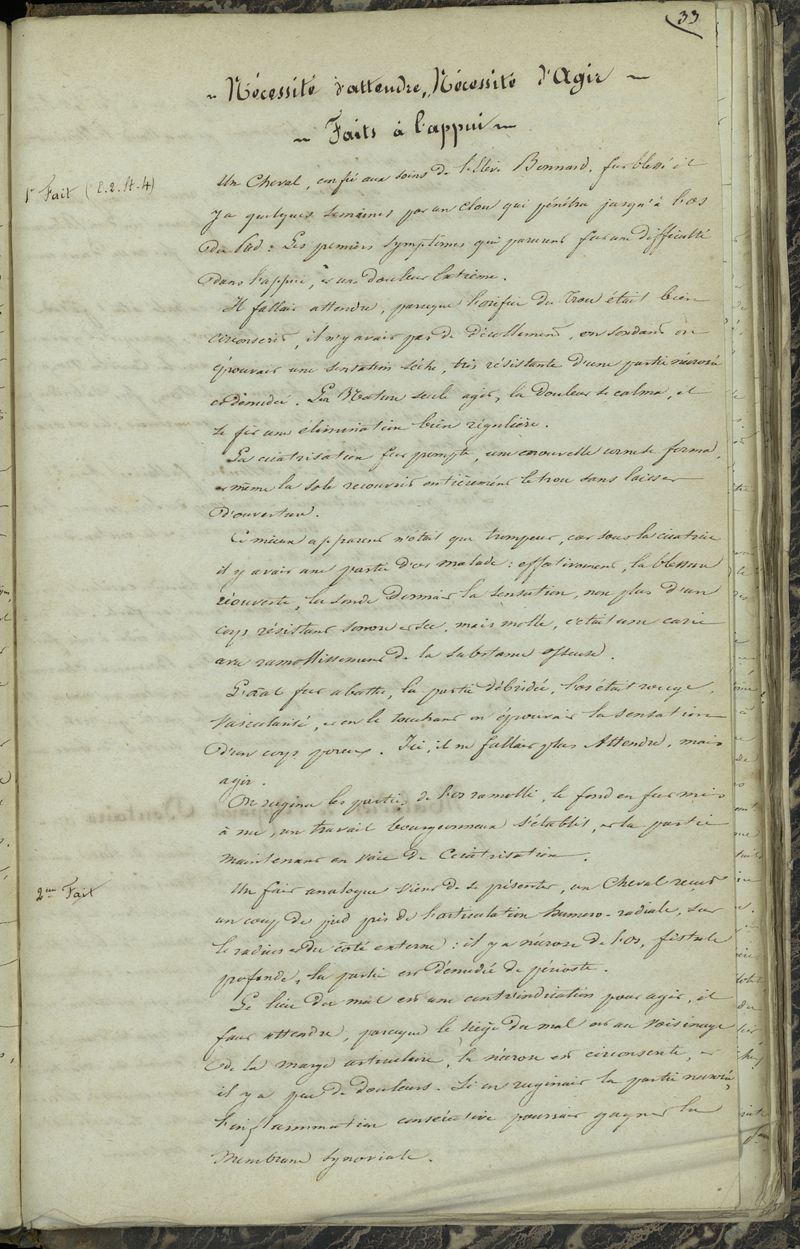 33
~ Nécessité d'attendre, Nécessité d'Agir ~
~ Faits à l'appui ~
1er Fait (C. 2. St. 4)
Un Cheval, confié aux soins de l'élève Bonnard, fut blessé il
y a quelques semaines par un clou qui pénétra jusqu'à l'os
du pied : Les premiers symptômes qui parurent fut une difficulté
dans l'appui, et une douleur extrême.
Il fallait attendre, parceque l'orifice du trou était bien
circonscrit, il n'y avait pas de décollement, en sondant on
éprouvait une sensation sèche, très résistante d'une partie nécrosée
et dénudée. La Nature seule agit, la douleur se calma, et
se fit une élimination bien régulière.
La cicatrisation fut prompte, une nouvelle corne se forma,
et même la sole recouvrit entièrement le trou sans laisser
d'ouverture.
Ce mieux apparent n'était que trompeur, car sous la cicatrice
il y avait une partie d'os malade : effectivement, la blessure
réouverte, la sonde donnait la sensation, non plus d'un
corps résistant sonore et sec, mais molle, c'était une carie
avec ramollissement de la substance osseuse.
L'anal fut abattu, la partie débridée, l'os était rouge,
vascularisé, et en le touchant on éprouvait la sensation
d'un corps poreux. Ici, il ne fallait plus Attendre, mais
agir.
On rugina les parties de l'os ramolli, le fond en fut mis
à nu, un travail bourgeonneux s'établit, et la partie
maintenant en voie de Cicatrisation.
2eme Fait
Un fait analogue vient de se présenter, un Cheval reçut
un coup de pied près de l'articulation humero-radiale, sur
le radius et du côté externe : il y a nécrose de l'os, fistule
profonde, la partie est dénudée de périoste.
Le lieu du mal est une contr'indication pour agir, il
faut attendre, parceque le siège du mal est au voisinage
de la marge articulaire, la nécrose est circonscrite, et
il y a peu de douleurs. Si on ruginait la partie nécrosée,
l'inflammation consécutive pourrait gagner la
membrane synoviale.